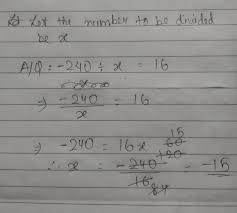 Let the number to be divided
be x
A/Q: -240 ÷ x = 16
⇒ -240/x = 16
⇒ -240 = 16x
∴ x = -240/16 = -15
15
60
120
84